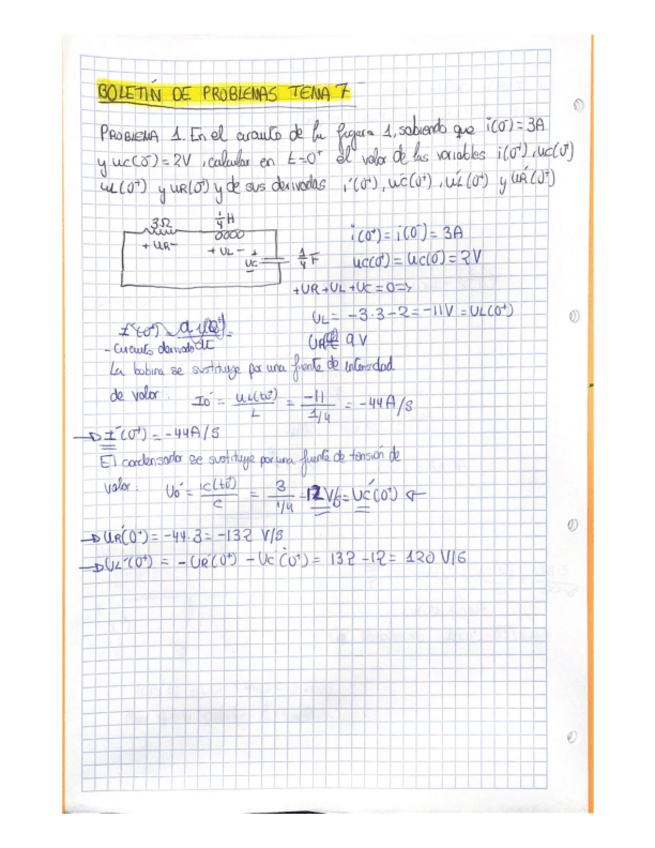 BOLETÍN DE PROBLEMAS TEMA 7
PROBLEMA 1. En el circuito de la figura 1, sabiendo que i(0⁻) = 3A
y uc(0⁻) = 2V, calcular en t=0⁺ el valor de las variables i(0⁺), uc(0⁺)
uL(0⁺) y uR(0⁺) y de sus derivadas i'(0⁺), uc'(0⁺), uL'(0⁺) y uR'(0⁺)
3Ω
1/4 H
+ UR -
+ UL -
+
UC
-
1/4 F
i(0⁺) = i(0⁻) = 3A
uc(0⁺) = uc(0⁻) = 2V
+UR+UL+UC=0=>
UL = -3·3-2 = -11V = UL(0⁺)
UR = 9V
- Circuito derivado
La bobina se sustituye por una fuente de intensidad
de valor: I0' = uL(t0⁺)/L = -11/(1/4) = -44A/s
→ I'(0⁺) = -44A/s
El condensador se sustituye por una fuente de tensión de
valor: U0' = ic(t0⁺)/c = 3/(1/4) = 12 V/s = UC'(0⁺) ←
→ UR'(0⁺) = -44·3 = -132 V/s
→ UL'(0⁺) = -UR'(0⁺) - UC'(0⁺) = 132 - 12 = 120 V/s